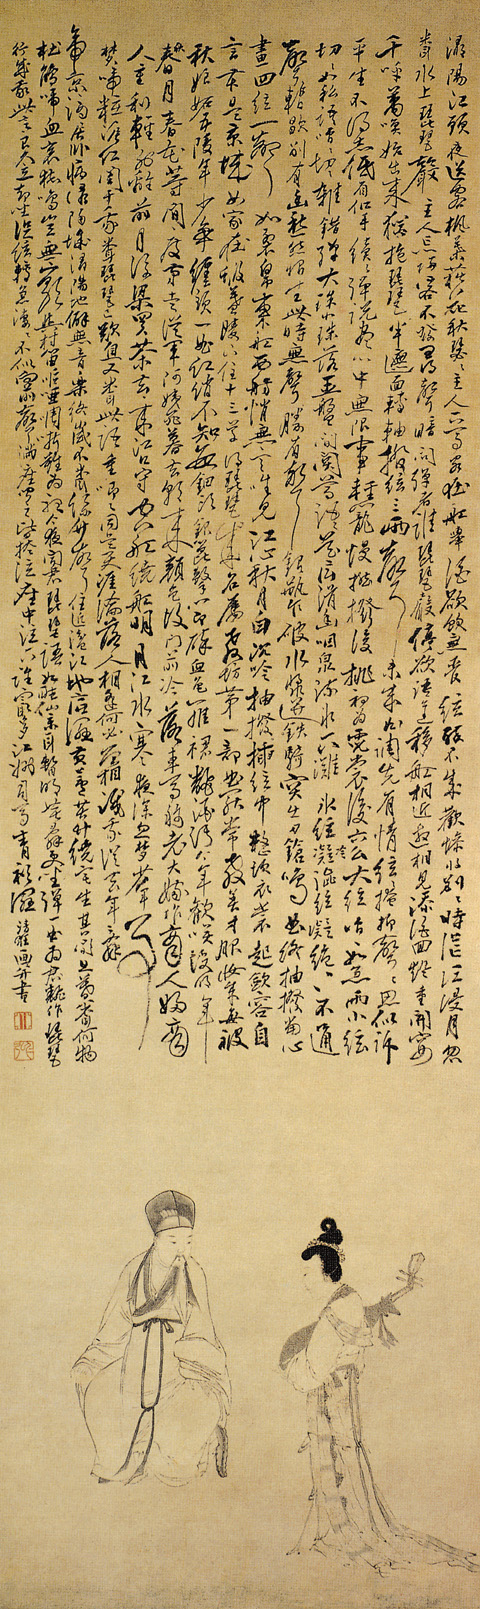 潯陽江頭夜送客楓葉荻花秋瑟瑟主人下馬客在船舉酒欲飲無管絃醉不成歡慘將別別時茫茫江浸月忽
聞水上琵琶聲主人忘歸客不發尋聲暗問彈者誰琵琶聲停欲語遲移船相近邀相見添酒回燈重開宴
千呼萬喚始出來猶抱琵琶半遮面轉軸撥絃三兩聲未成曲調先有情絃絃掩抑聲聲思似訴
平生不得志低眉信手續續彈說盡心中無限事輕攏慢撚撥復挑初為霓裳後六幺大絃嘈嘈如急雨小絃
切切如私語嘈嘈切切雜錯彈大珠小珠落玉盤間關鶯語花底滑幽咽泉流水下灘水絃冷澁絃凝絕凝絕不通
聲暫歇別有幽愁暗恨生此時無聲勝有聲銀瓶乍破水漿迸鐵騎突出刀鎗鳴曲終抽撥當心
畫四絃一聲如裂帛東船西舫悄無言唯見江心秋月白沉吟抽撥插絃中整頓衣裳起斂容自
言本是京城女家在蝦蟇陵下住十三學得琵琶成名屬教坊第一部曲罷常教善才服妝成每被
秋娘妬五陵年少爭纏頭一曲紅綃不知數鈿頭銀篦擊節碎血色羅裙翻酒污今年歡笑復明年
秋月春花等閒度弟走從軍阿姨死暮去朝來顏色故門前冷落車馬稀老大嫁作商人婦商
人重利輕別離前月浮梁買茶去去來江口守空船繞船明月江水寒夜深忽夢少年事
夢啼粧淚紅闌干我聞琵琶已歎息又聞此語重唧唧同是天涯淪落人相逢何必曾相識我從去年辭
帝京謫居臥病潯陽城潯陽地僻無音樂終歲不聞絲竹聲住近湓江地低濕黃蘆苦竹繞宅生其間旦暮聞何物
杜鵑啼血哀猿鳴豈無山歌與村笛嘔啞嘲哳難為聽今夜聞君琵琶語如聽仙樂耳暫明莫辭更坐彈一曲為君翻作琵琶
行感我此言良久立却坐促絃絃轉急淒淒不似向前聲滿座聞之皆掩泣座中泣下誰最多江州司馬青衫濕
清狂畫并書